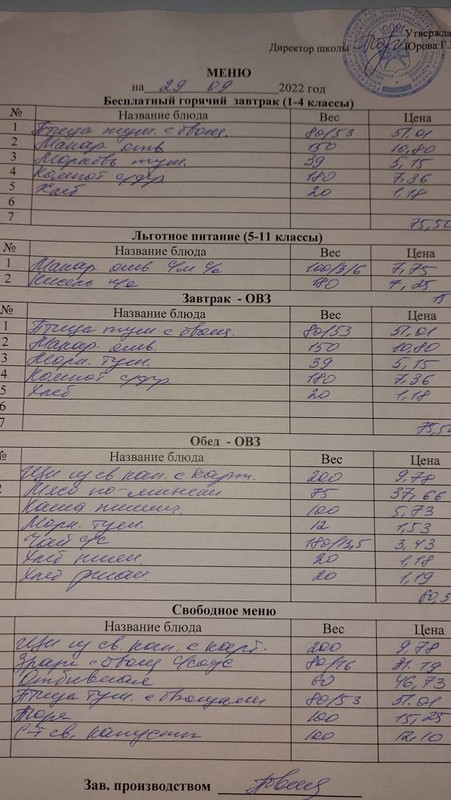 Утвержда
Директор школы Юрова Г.
МЕНЮ
на 29 09 2022 год
Бесплатный горячий завтрак (1-4 классы)
№ Название блюда Вес Цена
1 Птица туш. с овощ. 80/53 51,01
2 Макар. отв 150 10,80
3 Морковь туш. 39 5,15
4 Компот с/фр 180 7,36
5 Хлеб 20 1,18
6
7 75,50
Льготное питание (5-11 классы)
№ Название блюда Вес Цена
1 Макар отв 100/3/6 7,75
2 Кисель 180 7,25
15
Завтрак - ОВЗ
№ Название блюда Вес Цена
1 Птица туш с овощ. 80/53 51,01
2 Макар. отв. 150 10,80
3 Морк. туш. 39 5,15
4 Компот с/фр 180 7,36
5 Хлеб 20 1,18
6
7 75,50
Обед - ОВЗ
№ Название блюда Вес Цена
Щи из св кап. с карт. 200 9.78
2 Мясо по-мински 75 37,66
Каша пшенн. 100 5,73
Морк. туш. 12 1,53
Чай с/с 180/13,5 3,43
Хлеб пшен 20 1,18
Хлеб ржан 20 1,19
60,5
Свободное меню
Название блюда Вес Цена
Щи из св. кап. с карт. 200 9.78
Зразы с овощ с/соус 80/16 21.19
Отбивная 60 46,73
Птица туш. с овощами 80/53 51.01
Пюре 100 15,25
С-т св. капусты 100 12,10
Зав. производством